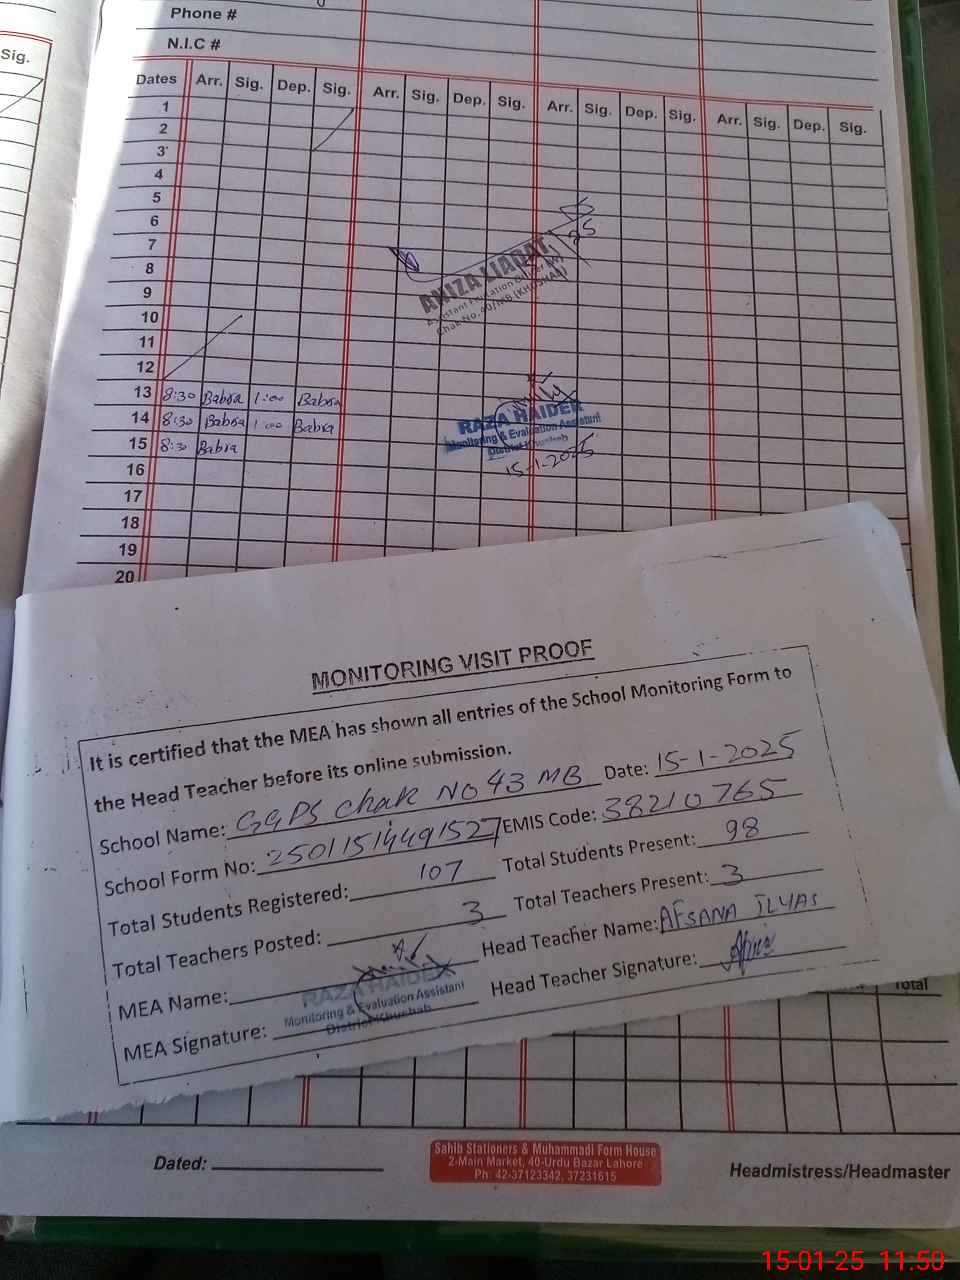 Phone #
N.I.C #
Sig.
Dates Arr. Sig. Dep. Sig. Arr. Sig. Dep. Sig. Arr. Sig. Dep. Sig. Arr. Sig. Dep. Sig.
1
2
3
4
5
6
7
8
9
10
11
12
13 8:30 Babra 1:00 Babra
14 8:30 Babra 1:00 Babra
15 8:30 Babra
16
17
18
19
20
ANIZA LIAQAT
Assistant Education Officer (W)
Chak No. 40/MB (KHUSHAB)
RAZA HAIDER
Monitoring & Evaluation Assistant
District Khushab
15-1-2025
MONITORING VISIT PROOF
It is certified that the MEA has shown all entries of the School Monitoring Form to
the Head Teacher before its online submission.
School Name: GGPS Chak NO 43 MB Date: 15-1-2025
School Form No: 25011514491527 EMIS Code: 38210765
Total Students Registered: 107 Total Students Present: 98
Total Teachers Posted: 3 Total Teachers Present: 3
MEA Name: Head Teacher Name: AFSANA ILYAS
RAZA HAIDER
Monitoring & Evaluation Assistant
District Khushab
MEA Signature: Head Teacher Signature:
Total
Dated:
Sahib Stationers & Muhammadi Form House
2-Main Market, 40-Urdu Bazar Lahore
Ph: 42-37123342, 37231615
Headmistress/Headmaster
15-01-25 11:50